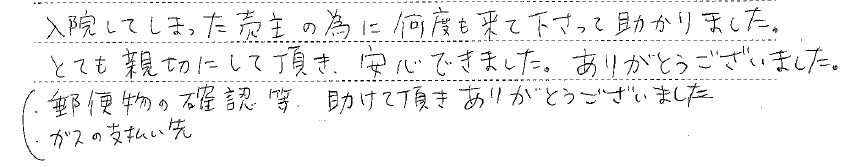 入院してしまった売主の為に何度も来て下さって助かりました。
とても親切にして頂き、安心できました。ありがとうございました。
・郵便物の確認等、助けて頂きありがとうございました
・ガスの支払い先